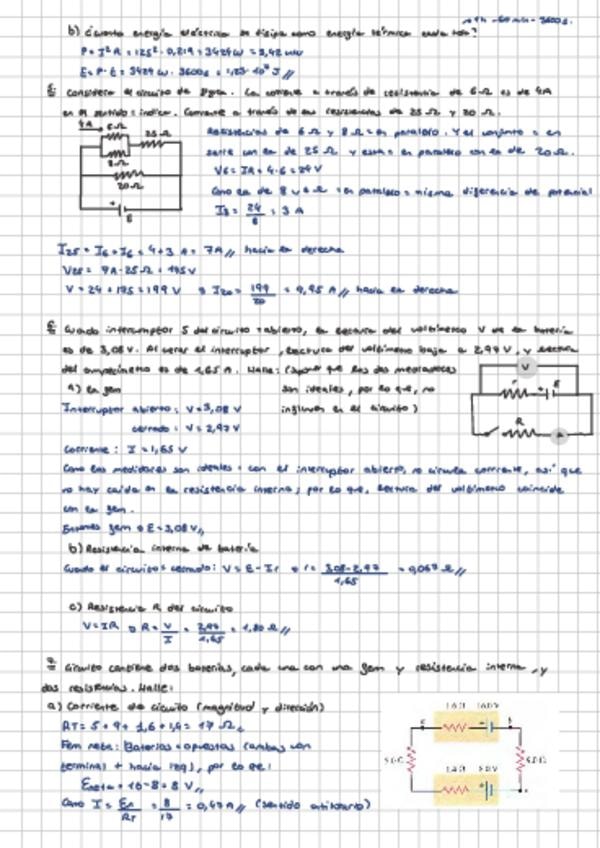 1h = 60 min = 3600 s.
b) ¿Cuánta energía eléctrica se disipa como energía térmica cada hora?
P = I²R = 125² · 0,219 = 3424 W = 3,42 kW
E = P · t = 3424 W · 3600 s = 1,23 · 10⁷ J //
Considera el circuito de figura. La corriente a través de resistencia de 6 Ω es de 4A
en el sentido indica. Corriente a través de las resistencias de 25 Ω y 20 Ω.
4A 6 Ω 25 Ω
8 Ω
20 Ω
+ E
Resistencias de 6 Ω y 8 Ω = en paralelo. Y el conjunto = en
serie con la de 25 Ω y esta = en paralelo con la de 20 Ω.
V6 = IR = 4·6 = 24 V
Como la de 8 y 6 Ω = en paralelo = misma diferencia de potencial
I8 = 24/8 = 3 A
I25 = I6 + I8 = 4+3 A = 7A // hacia la derecha
V25 = 7A · 25 Ω = 175 V
V = 24 + 175 = 199 V → I20 = 199/20 = 9,95 A // hacia la derecha
6. Cuando interruptor S del circuito = abierto, la lectura del voltímetro V de la batería
es de 3,08 V. Al cerrar el interruptor, lectura del voltímetro baja a 2,97 V, y lectura
del amperímetro es de 1,65 A. Halle: (Suponer que los dos medidores
a) La fem son ideales, por lo que, no
Interruptor abierto: V = 3,08 V influyen en el circuito)
cerrado: V = 2,97 V
Corriente: I = 1,65 V
V
r + E
R
A
Como los medidores son ideales = con el interruptor abierto, no circula corriente, así que
no hay caída en la resistencia interna; por lo que, lectura del voltímetro coincide
con la fem.
Entonces fem → E = 3,08 V //
b) Resistencia interna de batería
Cuando el circuito = cerrado: V = E - Ir → r = 3,08 - 2,97/1,65 = 0,067 Ω //
c) Resistencia R del circuito
V = IR → R = V/I = 2,97/1,65 = 1,80 Ω //
7. Circuito contiene dos baterías, cada una con una fem y resistencia interna, y
dos resistencias. Halle:
a) Corriente de circuito (magnitud y dirección)
RT = 5 + 9 + 1,6 + 1,4 = 17 Ω //
Fem neta: Baterías = opuestas (ambas con
terminal + hacia izq), por lo que:
Eneta = 16 - 8 = 8 V //
Como I = En/RT = 8/17 = 0,47 A // (sentido antihorario)
1.6 Ω 16.0 V
5.0 Ω 9.0 Ω
1.4 Ω 8.0 V